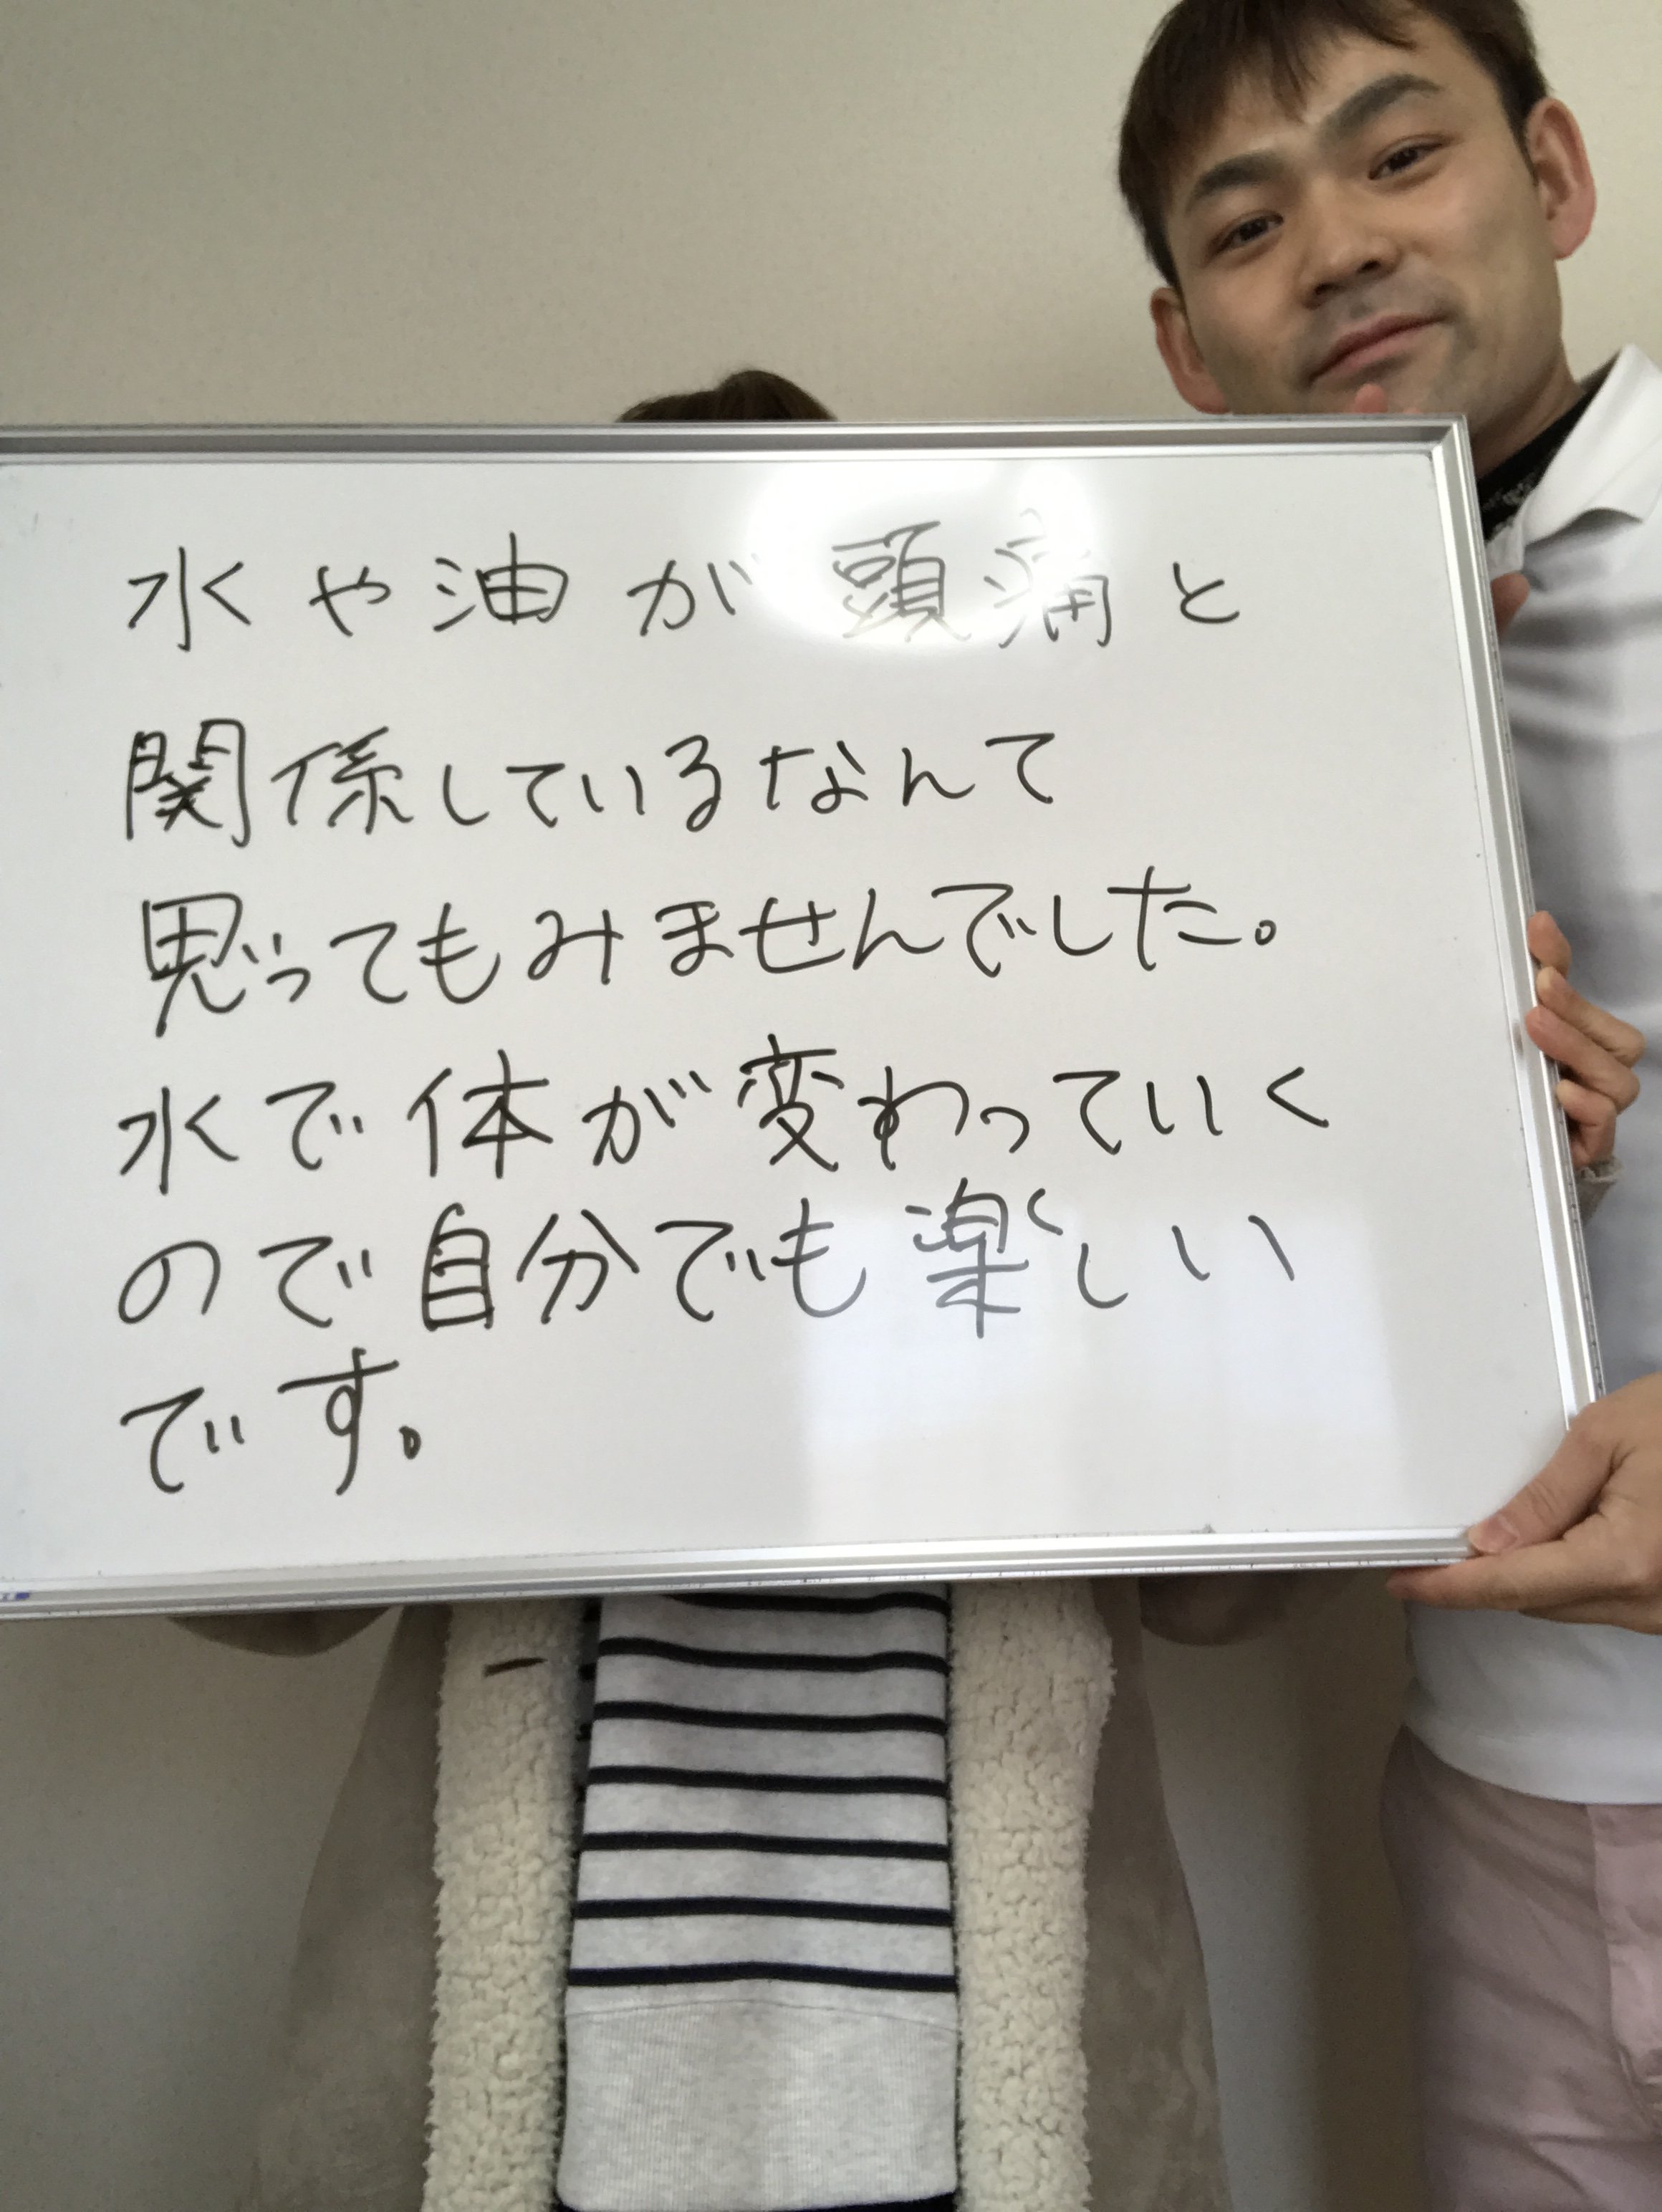 水や油が頭痛と
関係しているなんて
思ってもみませんでした。
水で体が変わっていく
ので自分でも楽しい
です。